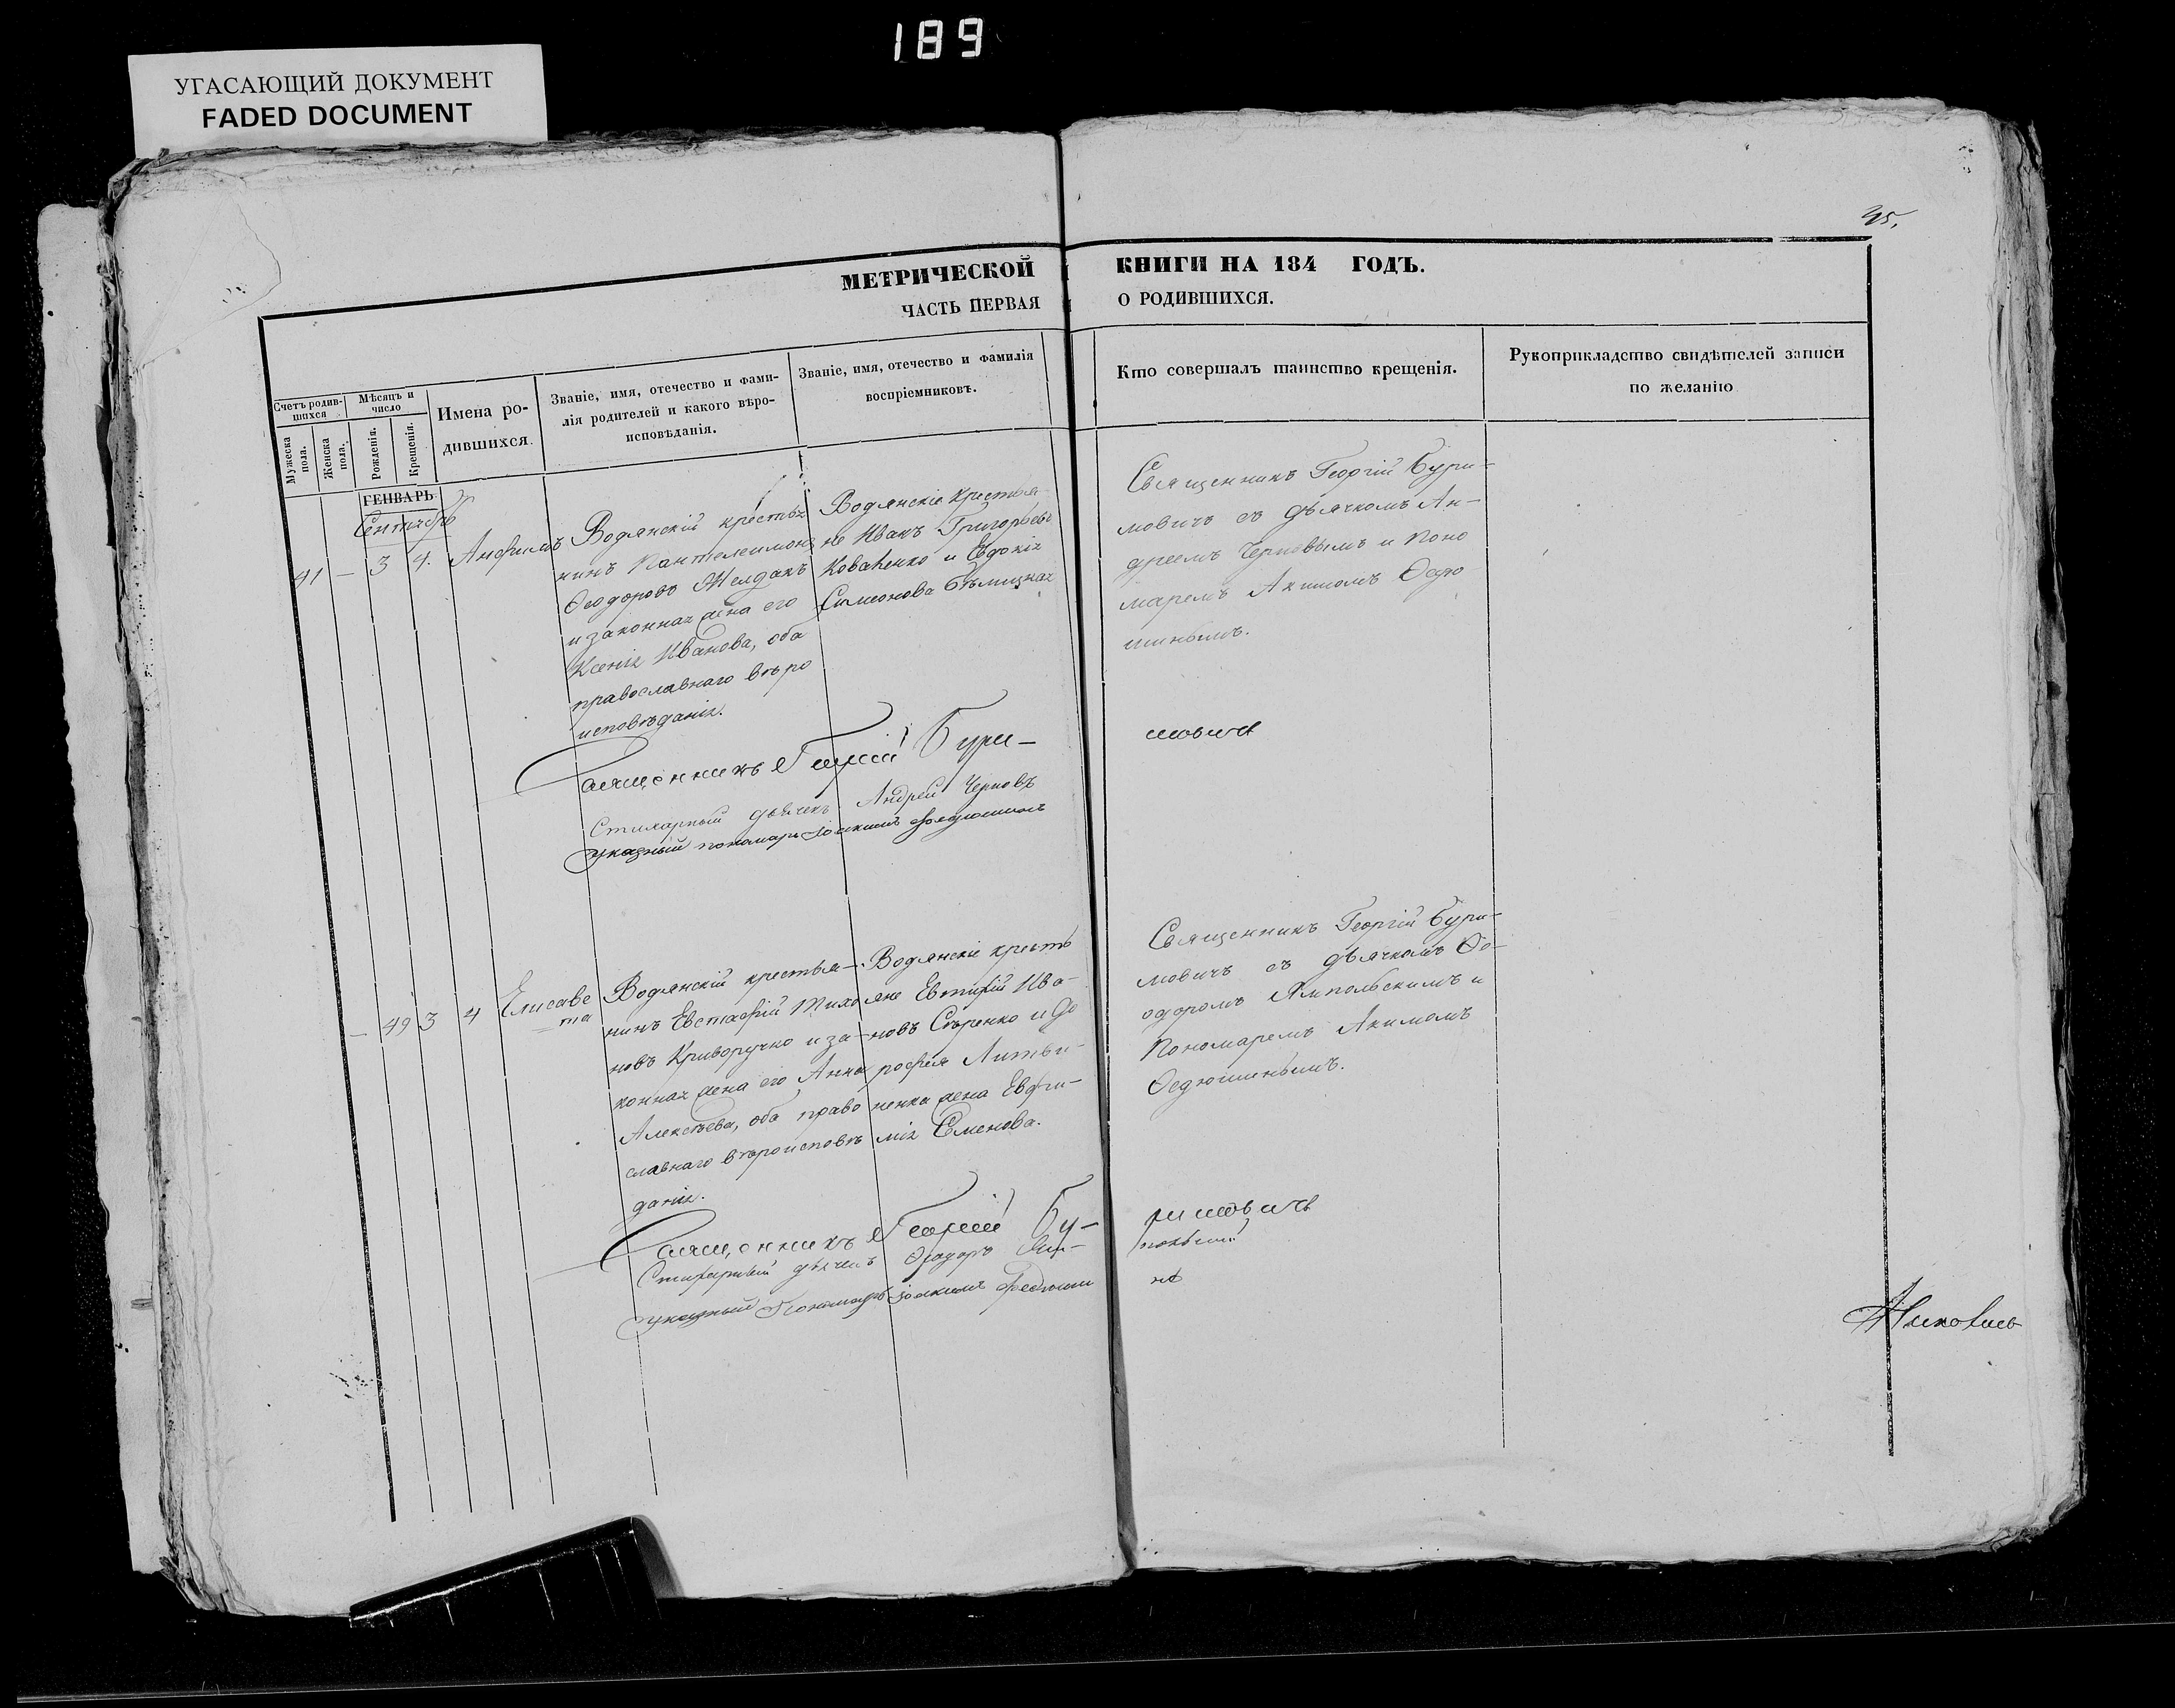 189
УГАСАЮЩИЙ ДОКУМЕНТ
FADED DOCUMENT
МЕТРИЧЕСКОЙ КНИГИ НА 184 ГОДЪ.
ЧАСТЬ ПЕРВАЯ О РОДИВШИХСЯ.
Счетъ родив-
шихся
Мужеска пола.
Женска пола.
Мѣсяцъ и
число
Рожденія.
Крещенія.
Имена ро-
дившихся.
Званіе, имя, отечество и фами-
лія родителей и какого вѣро-
исповѣданія.
Званіе, имя, отечество и фамилія
воспріемниковъ.
Кто совершалъ таинство крещенія.
Рукоприкладство свидѣтелей записи
по желанію
ГЕНВАРЬ
Сентябрь
41 — 3 4. Анфимъ
Водянскій крестья
нинъ Пантелеимонъ
Ѳеодоровъ Желдакъ
и законная жена его
Ксенія Иванова, оба
православнаго вѣро
исповѣданія.
Водянскіе крестья
не Иванъ Григорьевъ
Коваленко и Евдокія
Симеонова
Священникъ Георгій Бури-
мовичъ съ дьячкомъ Ан-
дреемъ Черновымъ и Поно
маремъ Акимомъ Ѳедю
шинымъ.
Священникъ Георгій Бури-мовичъ
Стихарный дьячекъ Андрей Черновъ
указный пономарь Іоакимъ
— 49 3 4 Елисаве
та
Водянскій крестья-
нинъ Евстафій Тихо
новъ Криворучко и за-
конная жена его Анна
Алексѣева, оба право
славнаго вѣроисповѣ
данія.
Водянскіе кресть
яне Евтихій Ива-
новъ Сѣренко и До
рофея Литви-
ненка жена Евфи-
мія Семенова.
Священникъ Георгій Бури-
мовичъ съ дьячкомъ Ѳе-
одоромъ Ямпольскимъ и
Пономаремъ Акимомъ
Ѳедюшинымъ.
Священникъ Георгій Бу-римовичъ
Стихарный дьячекъ Ѳеодоръ
указный Пономарь Іоакимъ Федюшинъ